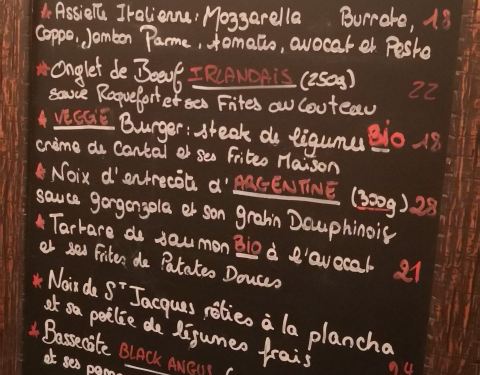 * Assiette Italienne: Mozzarella Burrata, 18
Coppa, Jambon Parme, tomates, avocat et Pesto
* Onglet de Boeuf IRLANDAIS (250g) 22
sauce Roquefort et ses Frites au Couteau
* VEGGIE Burger: steak de légumes BIO 18
crème de Cantal et ses Frites Maison
* Noix d'entrecôte d'ARGENTINE (300g) 28
sauce gorgonzola et son gratin Dauphinois
* Tartare de saumon BIO à l'avocat 21
et ses Frites de Patates Douces
* Noix de ST Jacques rôties à la plancha
et sa poêlée de légumes frais
* Bassecôte BLACK ANGUS ( 24
et ses